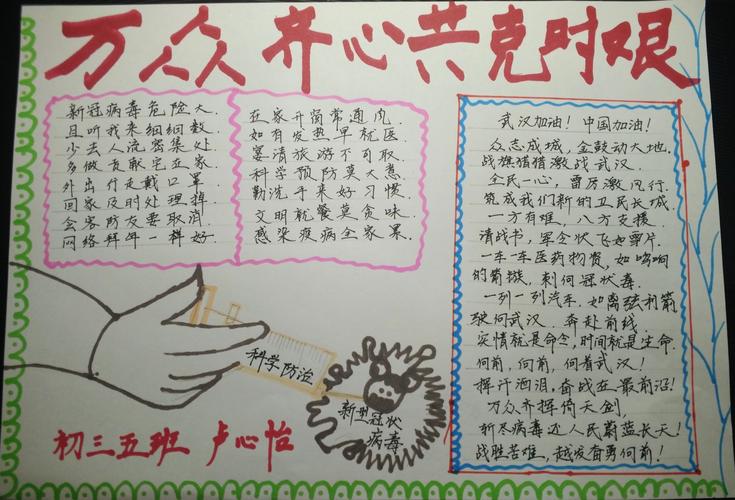 万众齐心共克时艰
新冠病毒危险大.
且听我来细细数.
少去人流密集处
多做贡献宅在家
外出行走戴口罩.
回家及时处理掉.
会客防友要取消
网络拜年一样好.
在家开窗常通风.
如有发热早就医.
宴请旅游不可取.
科学预防莫大意.
勤洗手来好习惯.
文明就餐莫贪味.
感染疫病全家累.
武汉加油! 中国加油!
众志成城, 金鼓动大地.
战旗猎猎激战武汉.
全民一心, 雷厉激风行.
筑成我们新的卫民长城.
一方有难, 八方支援.
请战书, 军令状飞如雪片.
一车一车医药物资, 如响
的箭镞, 刺向冠状毒.
一列一列汽车. 如离弦利箭
驶向武汉. 奔赴前线.
灾情就是命令, 时间就是生命.
向前, 向前, 向着武汉!
挥汗洒泪, 奋战在最前沿!
万众齐挥倚天剑,
斩尽病毒还人民蔚蓝长天!
战胜苦难, 越发奋勇向前!
科学防治
新型冠状
病毒
初三五班 卢心怡